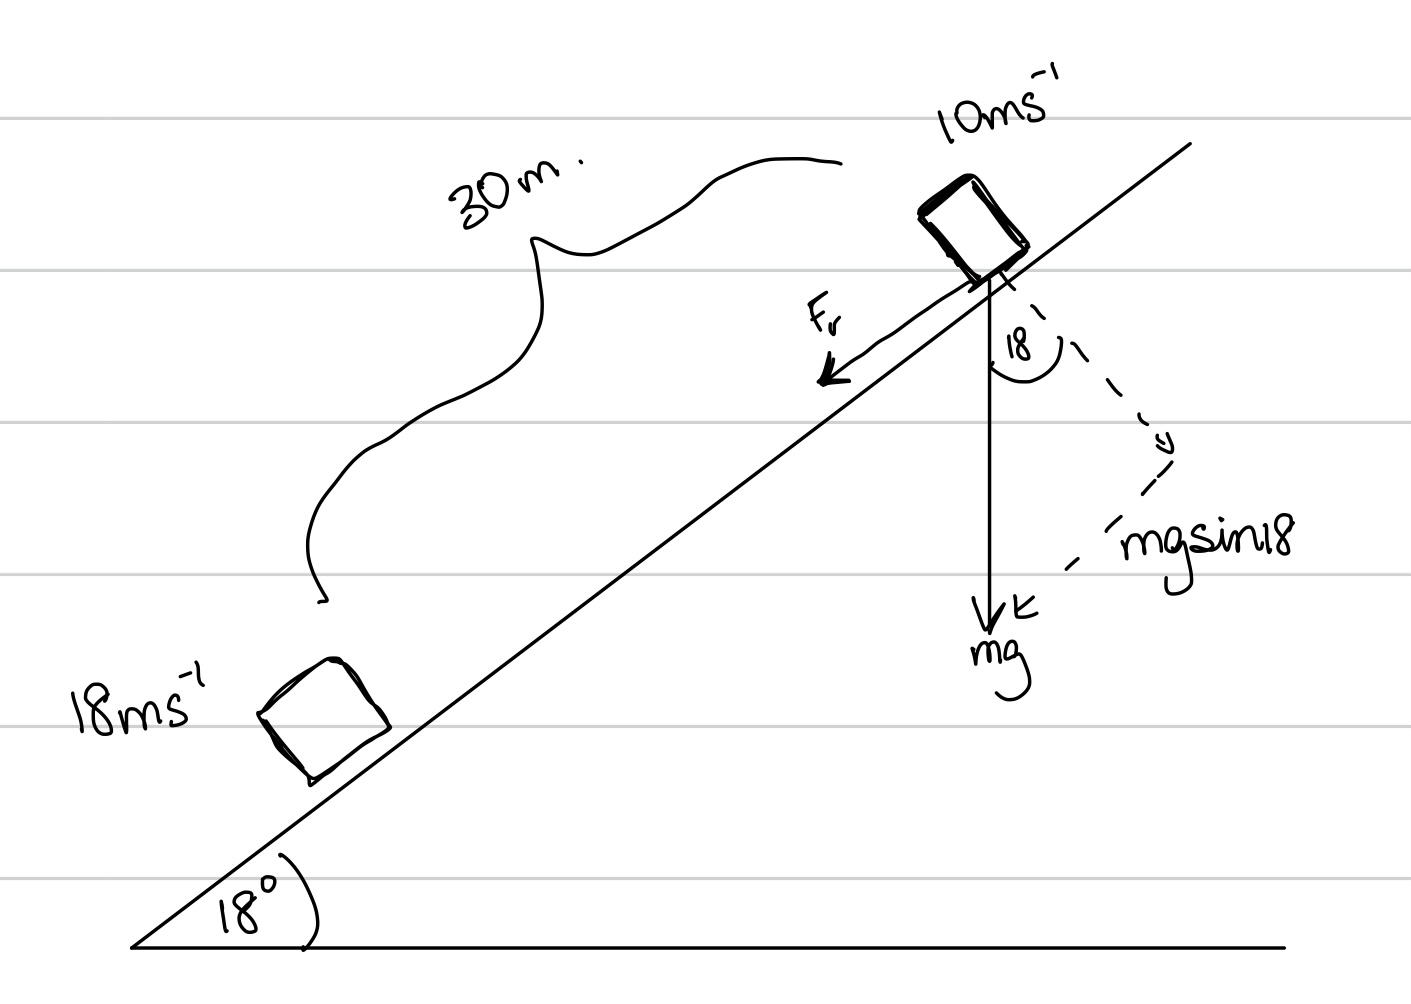 10ms⁻¹
30m.
Fr
18
mgsin18
mg
18ms⁻¹
18°